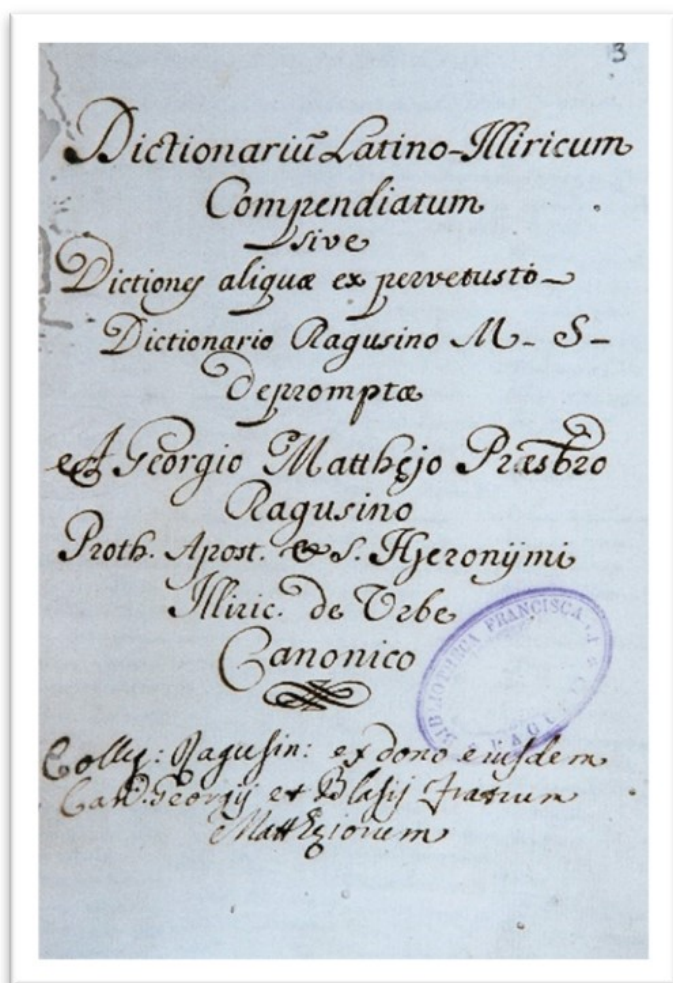 3
Dictionariū Latino-Illiricum
Compendiatum
sive
Dictiones aliquæ ex pervetusto
Dictionario Ragusino M- S-
Depromptæ
A Georgio Matthejo Præsbro
Ragusino
Proth. Apost. & S. Hjeronÿmi
Illiric. de Urbe
Canonico
BIBLIOTHECA FRANCISCA
RAGUSI
Colleg: Ragusin: ex dono eiusdem
Can: Georgij et Blasij Fratrum
Mattheiorum